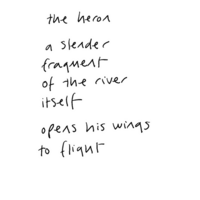 the heron
a slender
fragment
of the river
itself
opens his wings
to flight